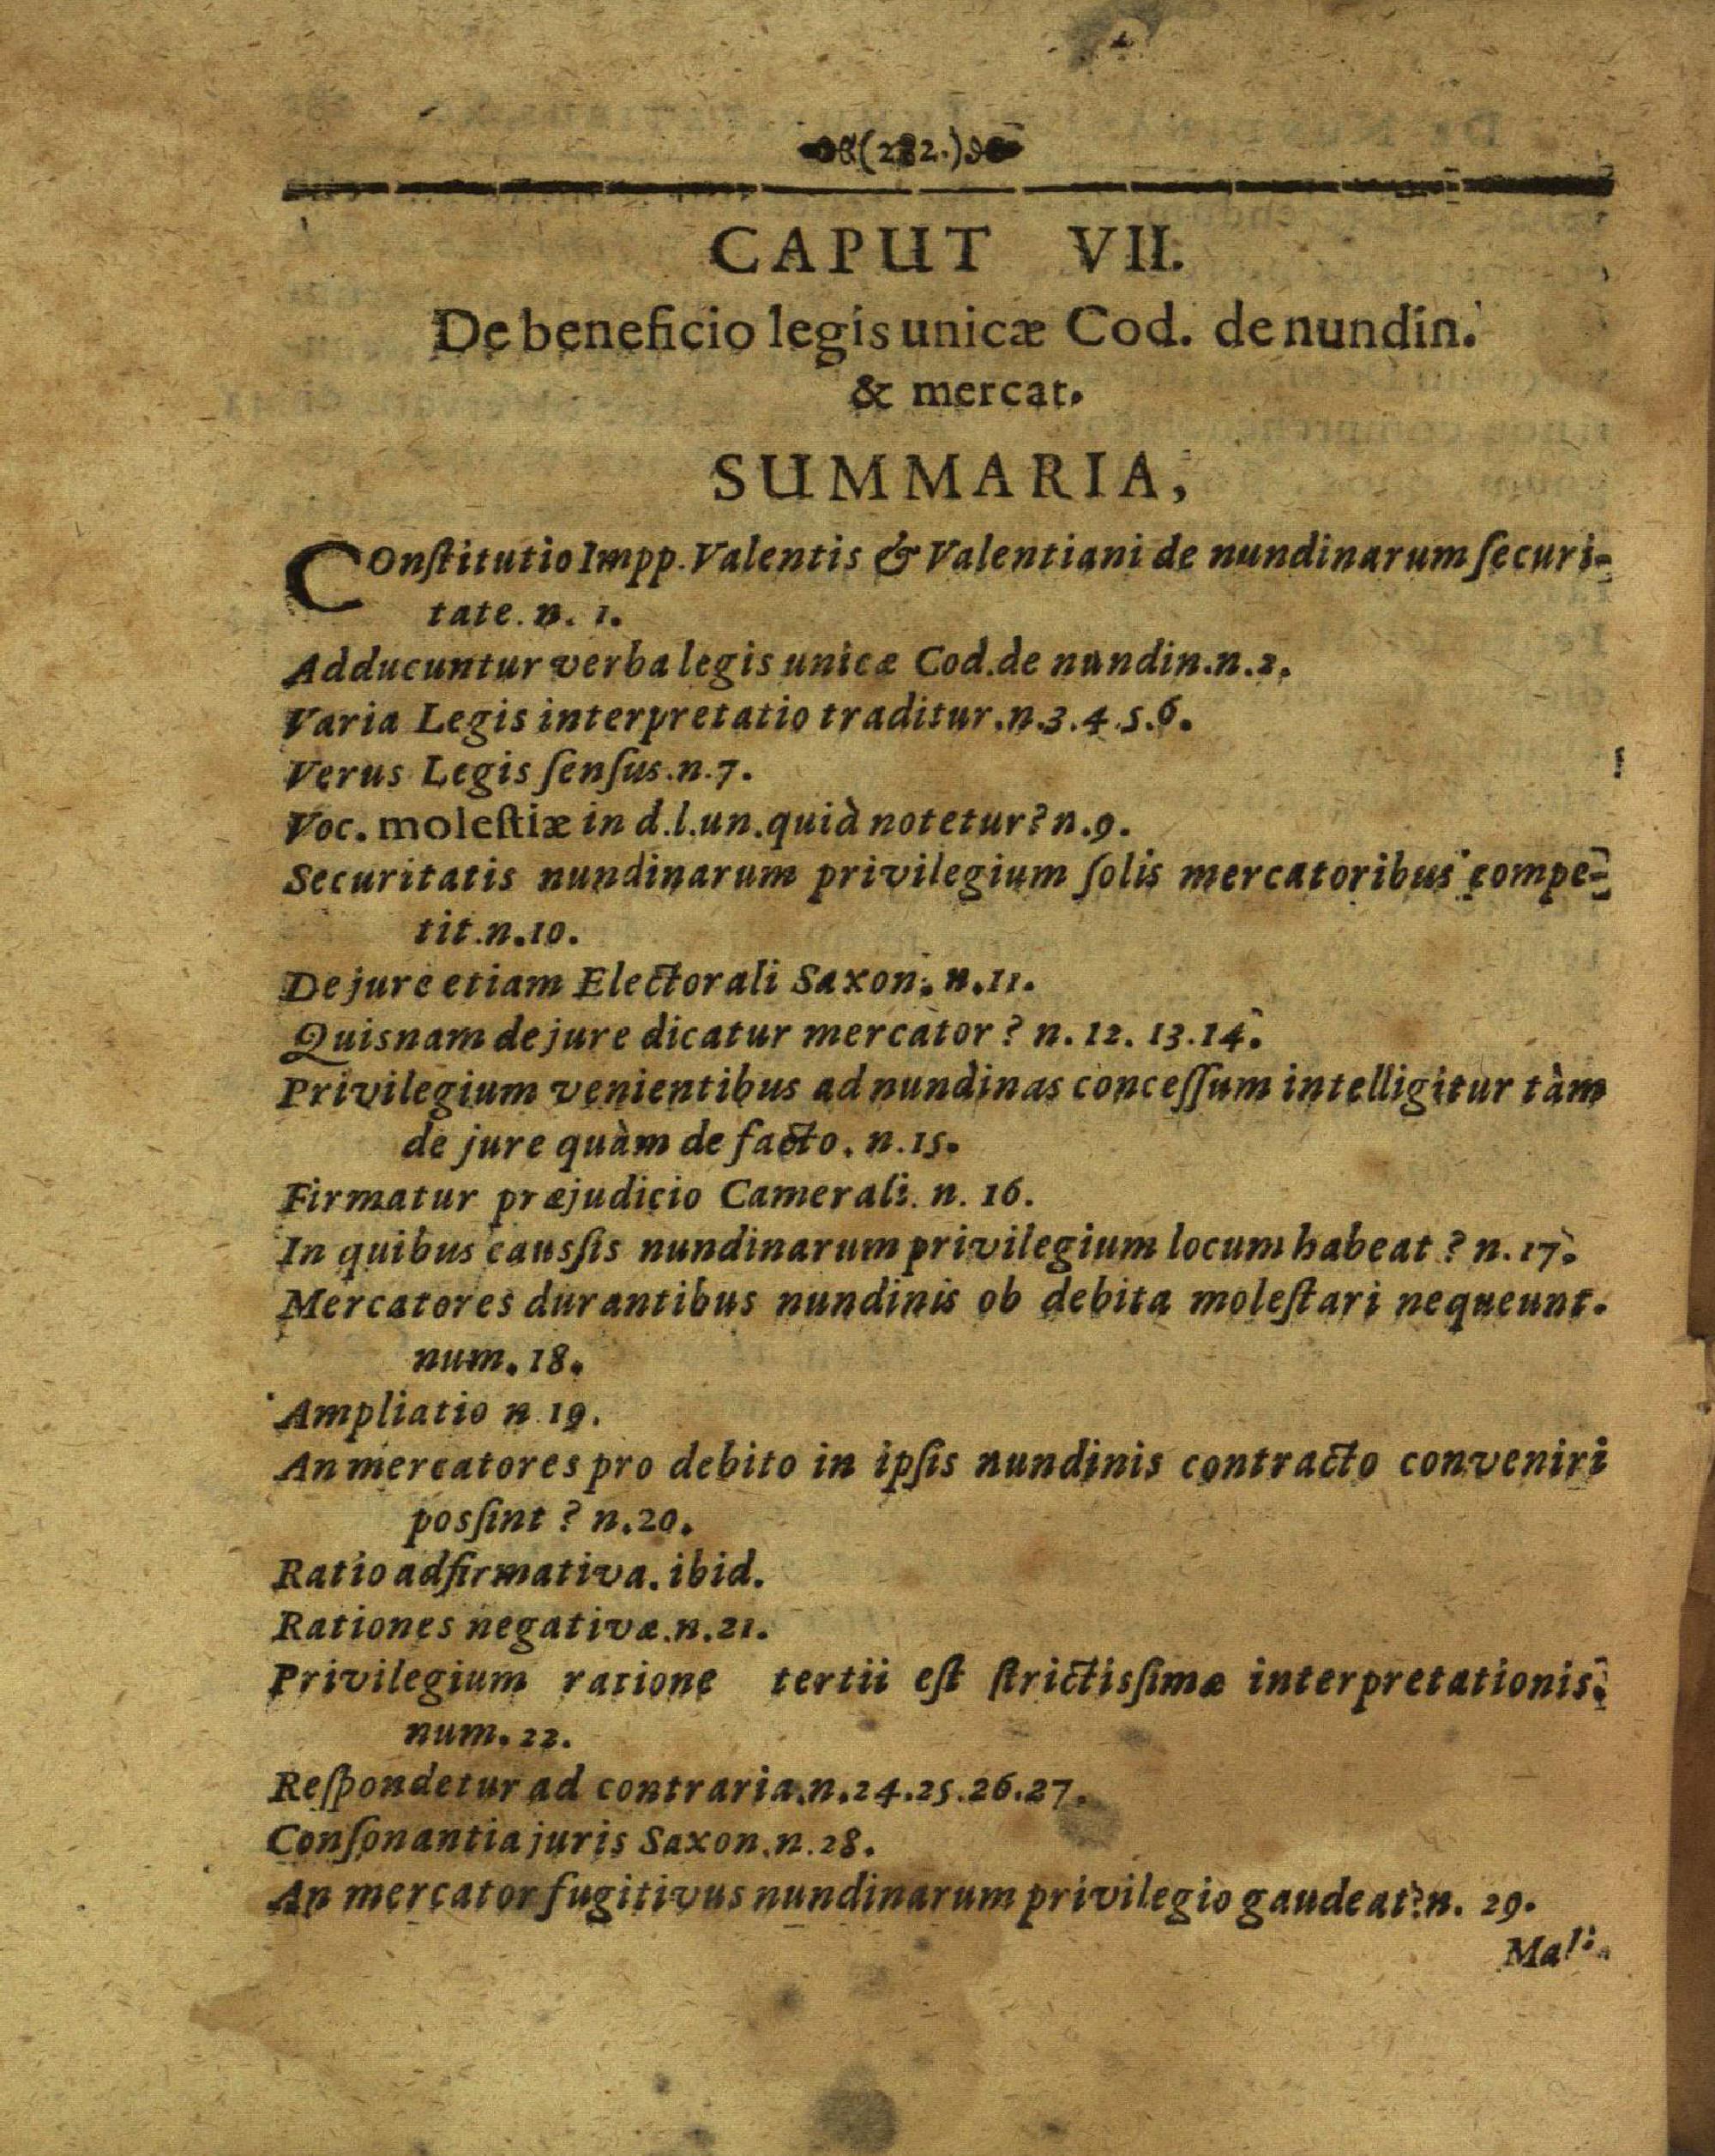 (282.)
CAPUT VII.
De beneficio legis unicæ Cod. de nundin.
& mercat.
SUMMARIA,
COnſtitutio Impp. Valentis & Valentiani de nundinarum ſecuri-
tate. n. 1.
Adducuntur verba legis unicæ Cod. de nundin. n. 2.
Varia Legis interpretatio traditur. n. 3. 4. 5. 6.
Verus Legis ſenſus. n. 7.
Voc. moleſtiæ in d. l. un. quid notetur? n. 9.
Securitatis nundinarum privilegium ſolis mercatoribus compe-
tit. n. 10.
De jure etiam Electorali Saxon. n. 11.
Quisnam de jure dicatur mercator? n. 12. 13. 14.
Privilegium venientibus ad nundinas conceſſum intelligitur tàm
de jure quàm de facto. n. 15.
Firmatur præjudicio Camerali. n. 16.
In quibus causſis nundinarum privilegium locum habeat? n. 17.
Mercatores durantibus nundinis ob debita moleſtari nequeunt.
num. 18.
Ampliatio n. 19.
An mercatores pro debito in ipſis nundinis contracto conveniri
posſint? n. 20.
Ratio adfirmativa. ibid.
Rationes negativæ. n. 21.
Privilegium ratione tertii eſt ſtrictisſimæ interpretationis.
num. 22.
Reſpondetur ad contraria. n. 24. 25. 26. 27.
Conſonantia juris Saxon. n. 28.
An mercator fugitivus nundinarum privilegio gaudeat? n. 29.